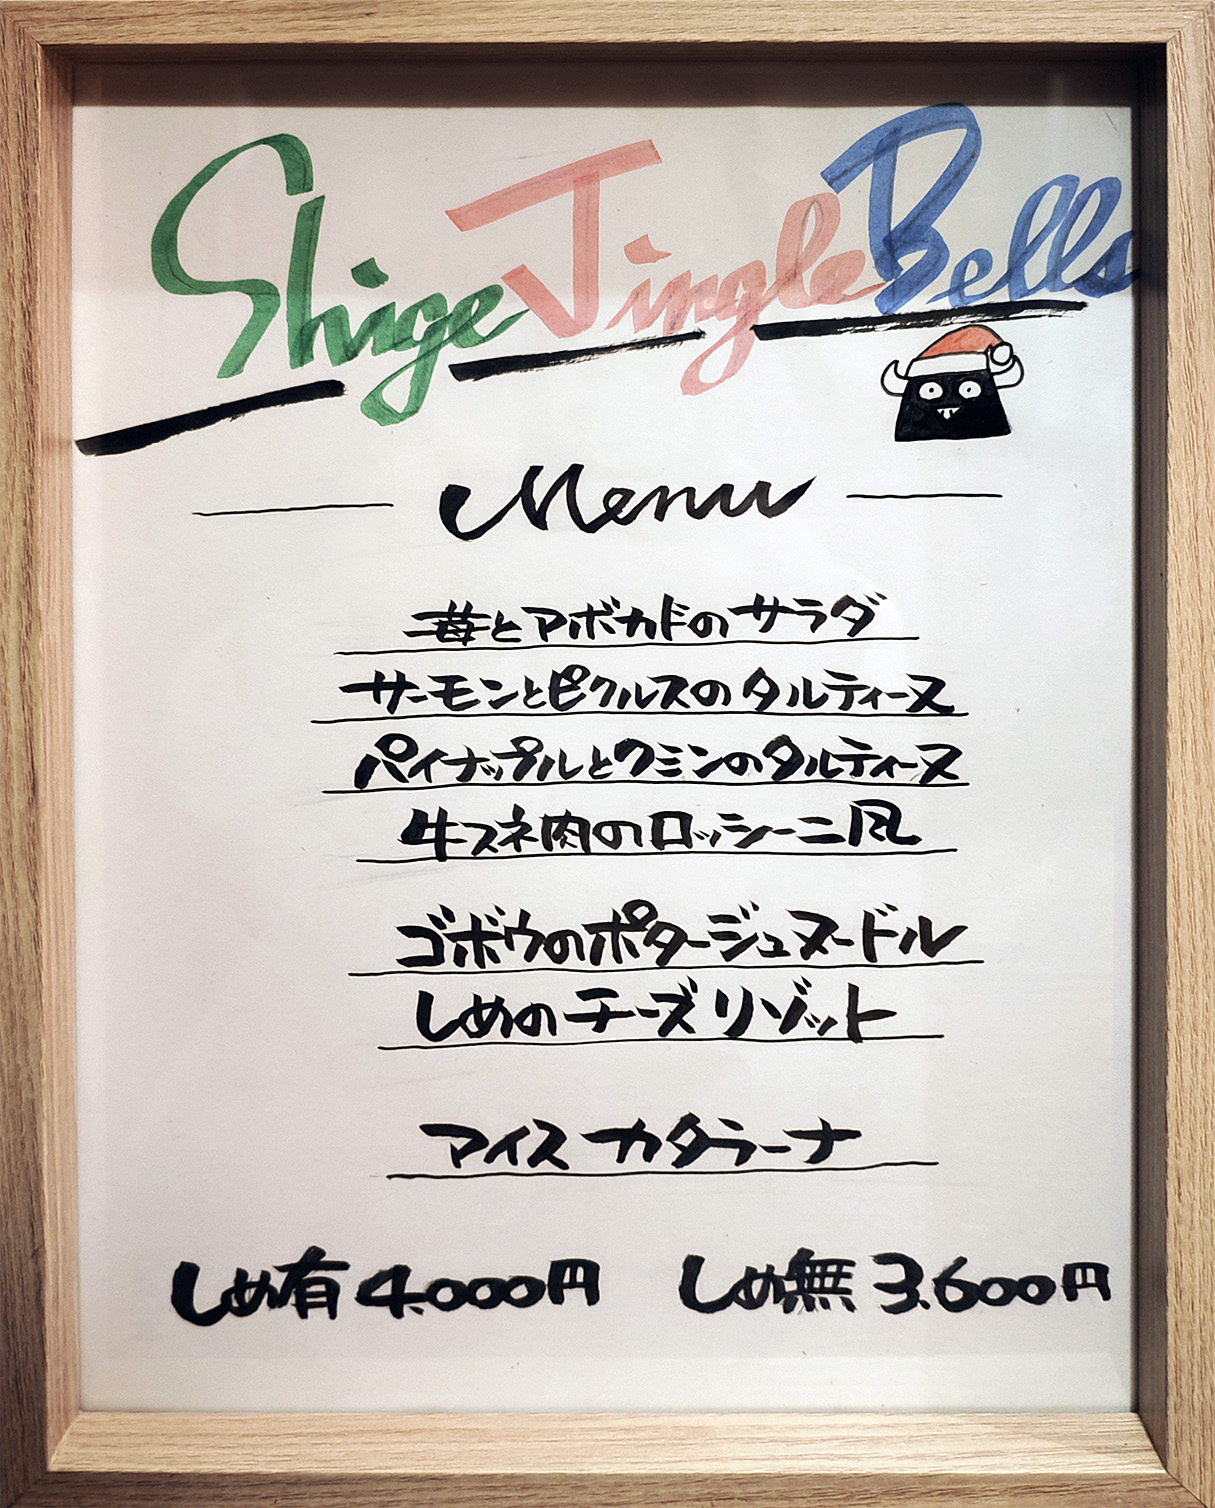 Shige Jingle Bells
Menu
苺とアボカドのサラダ
サーモンとピクルスのタルティーヌ
パイナップルとクミンのタルティーヌ
牛スネ肉のロッシーニ風
ゴボウのポタージュヌードル
しめのチーズリゾット
アイスカタラーナ
しめ有 4.000円 しめ無 3.600円